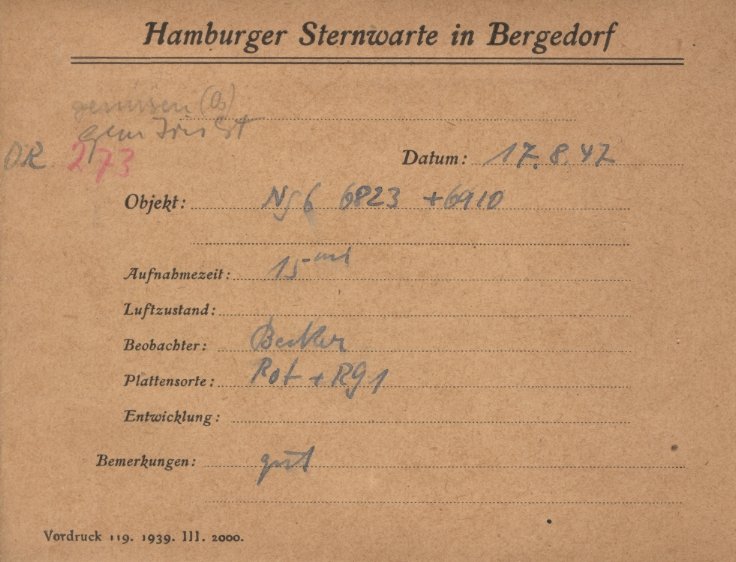 Hamburger Sternwarte in Bergedorf
gemessen
OR. 273
Datum: 17.8.47
Objekt: NgC 6823 + 6910
Aufnahmezeit: 15
Luftzustand:
Beobachter:
Plattensorte: Rot + Rg1
Entwicklung:
Bemerkungen: gut
Vordruck 119. 1939. III. 2000.